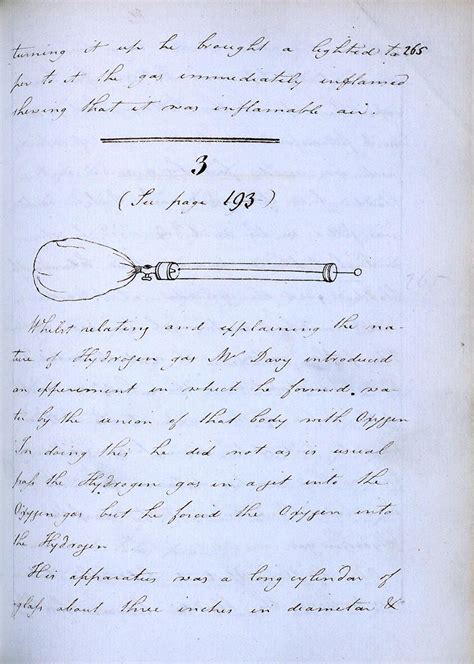 turning it up he brought a lighted ta- 265
per to it the gas immediately inflamed
shewing that it was inflamable air.
3
(See page 193)
Whilst relating and explaining the na-
ture of Hydrogen gas Mr Davy introduced
an experiment in which he formed wa-
ter by the union of that body with Oxygen
In doing this he did not as is usual
pass the Hydrogen gas in a jet into the
Oxygen gas but he forced the Oxygen into
the Hydrogen
His apparatus was a long cylendar of
glass about three inches in diametar &